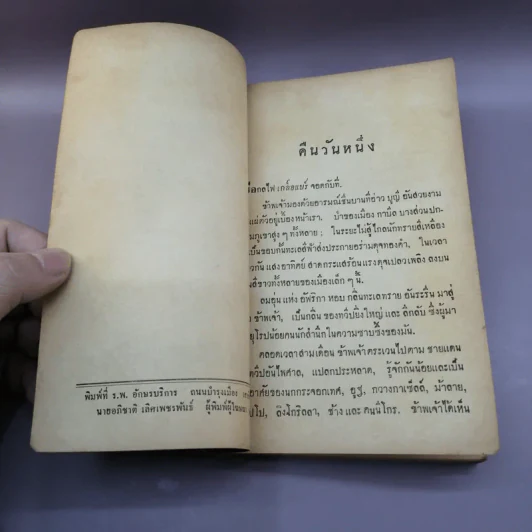 พิมพ์ที่ ร.พ. อักษรบริการ ถนนบำรุงเมือง
นายอภิชาติ เลิศเพชรพันธ์ ผู้พิมพ์ผู้โฆษณา
คืนวันหนึ่ง
จอดกับที่.
ข้าพเจ้ามองด้วยอารมณ์ชื่นบานที่อ่าว บูยี อันสวยงาม
แผ่ตัวอยู่เบื้องหน้าเรา. ป่าของเมือง กาบิล บางส่วนปก-
ภูเขาสูง ๆ ทั้งหลาย; ในระยะไม่สู้ไกลนักทรายสีเหลือง
เป็นขอบกั้นทะเลสีฟ้าส่งประกายอร่ามดุจทองคำ, ในเวลา
แสง อาทิตย์ สาดกระแสร้อนแรงดุจเปลวเพลิง ลงบน
สีขาวทั้งหลายของเมืองเล็ก ๆ นี้.
ลมอุ่น แห่ง อัฟริกา หอบ กลิ่นทะเลทราย อันระรื่น มาสู่
ข้าพเจ้า, เป็นกลิ่น ของทวีปยิ่งใหญ่ และ ลึกลับ ซึ่งผู้มา
ยุโรปน้อยคนนักสำนึกในความซาบซึ้งของมัน.
ตลอดเวลาสามเดือน ข้าพเจ้าตระเวนไปตาม ชายแดน
ทวีปอันไพศาล, แปลกประหลาด, รู้จักกันน้อยและเป็น
อาศัยของนกกระจอกเทศ, อูฐ, กวางกาเซ็ลล์, ม้าลาย,
ลิงโกริลลา, ช้าง และ คนนิโกร. ข้าพเจ้าได้เห็น